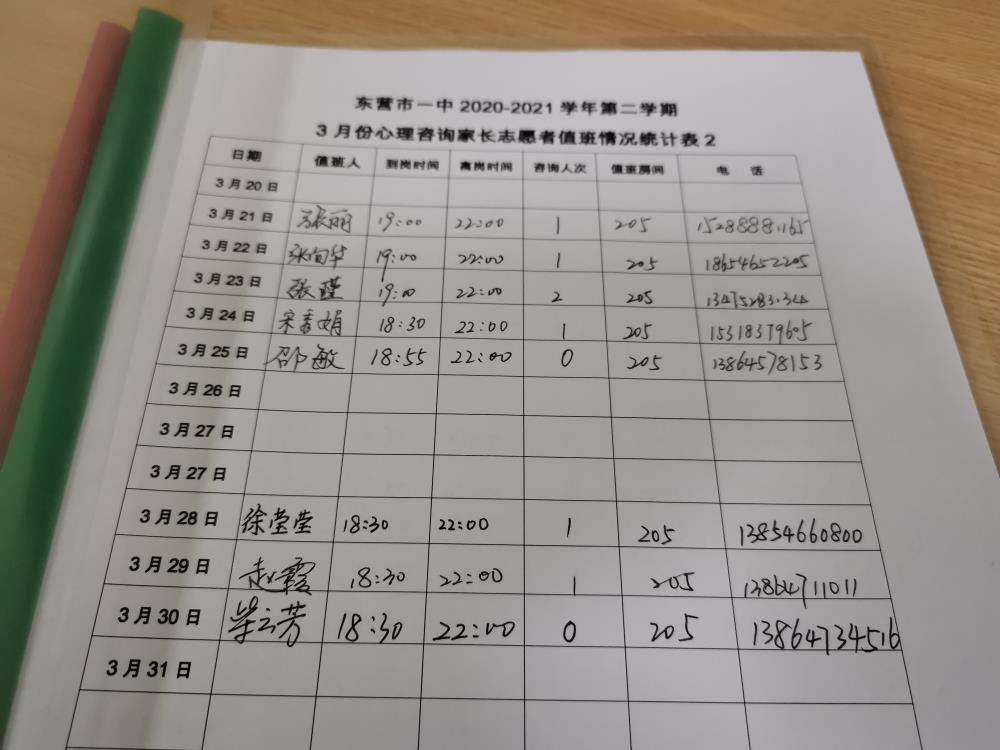 东营市一中 2020-2021 学年第二学期
3月份心理咨询家长志愿者值班情况统计表2
日期 值班人 到岗时间 离岗时间 咨询人次 值班房间 电 话
3月20日
3月21日 张丽 19:00 22:00 1 205
3月22日 19:00 22:00 1 205 18654652205
3月23日 张瑾 19:00 22:00 2 205
3月24日 宋秀娟 18:30 22:00 1 205 15318379605
3月25日 邵敏 18:55 22:00 0 205 13864578153
3月26日
3月27日
3月27日
3月28日 徐莹莹 18:30 22:00 1 205 13854660800
3月29日 赵霞 18:30 22:00 1 205 13864711011
3月30日 18:30 22:00 0 205 13864734516
3月31日